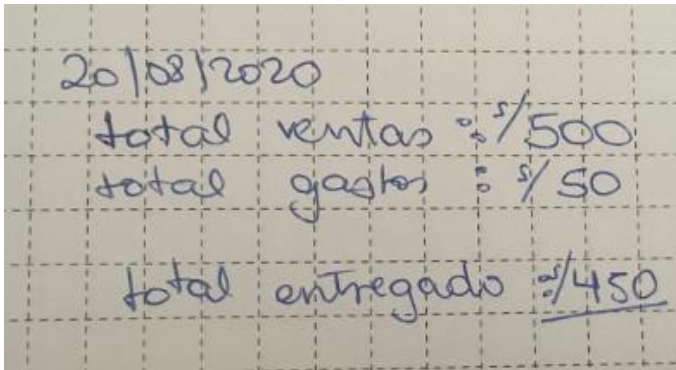 20/08/2020
total ventas : s/500
total gastos : s/50
total entregado : s/450